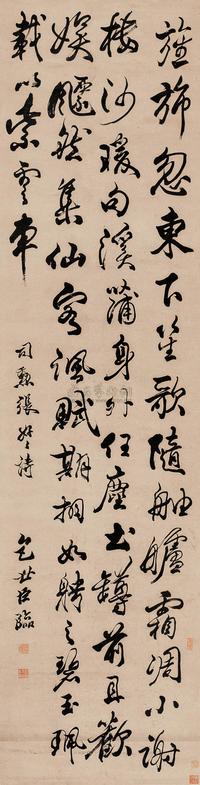 旌旆忽東下笙歌隨舳艫霜凋小謝
樓沙暖句溪蒲身外任塵土罇前且歡
娛飄然集仙客諷賦期相如聘之碧玉珮
載以紫雲車
司勳張好好詩
包世臣臨